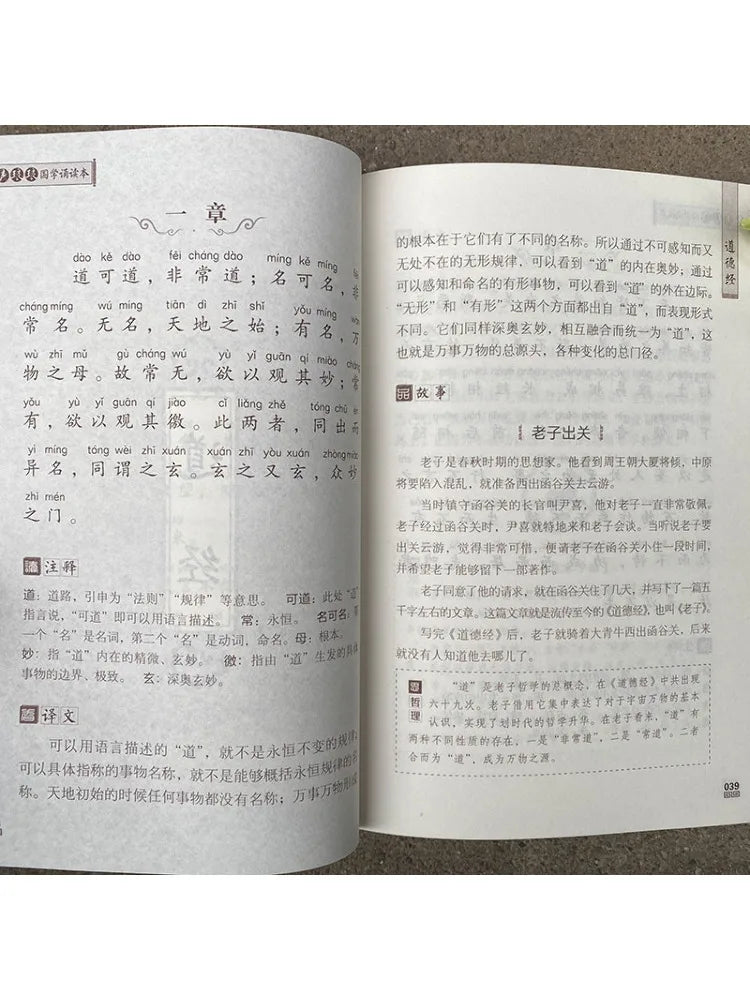 国学诵读本
一章
dào kě dào fēi cháng dào míng kě míng
道可道，非常道；名可名，非
cháng míng wú míng tiān dì zhī shǐ yǒu míng
常名。无名，天地之始；有名，万
wù zhī mǔ gù cháng wú yù yǐ guān qí miào
物之母。故常无，欲以观其妙；常
yǒu yù yǐ guān qí jiào cǐ liǎng zhě tóng chū
有，欲以观其徼。此两者，同出而
yì míng tóng wèi zhī xuán xuán zhī yòu xuán zhòng miào
异名，同谓之玄。玄之又玄，众妙
zhī mén
之门。
注释
道：道路，引申为“法则”“规律”等意思。 可道：此处“道”
指言说，“可道”即可以用语言描述。 常：永恒。 名可名：第
一个“名”是名词，第二个“名”是动词，命名。 母：根本。
妙：指“道”内在的精微、玄妙。 徼：指由“道”生发的具体
事物的边界、极致。 玄：深奥玄妙。
译文
可以用语言描述的“道”，就不是永恒不变的规律；
可以具体指称的事物名称，就不是能够概括永恒规律的名
称。天地初始的时候任何事物都没有名称；万事万物形成
道德经
的根本在于它们有了不同的名称。所以通过不可感知而又
无处不在的无形规律，可以看到“道”的内在奥妙；通过
可以感知和命名的有形事物，可以看到“道”的外在边际。
“无形”和“有形”这两个方面都出自“道”，而表现形式
不同。它们同样深奥玄妙，相互融合而统一为“道”，这
也就是万事万物的总源头，各种变化的总门径。
品故事
老子出关
老子是春秋时期的思想家。他看到周王朝大厦将倾，中原
将要陷入混乱，就准备西出函谷关去云游。
当时镇守函谷关的长官叫尹喜，他对老子一直非常敬佩。
老子经过函谷关时，尹喜就特地来和老子会谈。当听说老子要
出关云游，觉得非常可惜，便请老子在函谷关小住一段时间，
并希望老子能够留下一部著作。
老子同意了他的请求，就在函谷关住了几天，并写下了一篇五
千字左右的文章。这篇文章就是流传至今的《道德经》，也叫《老子》。
写完《道德经》后，老子就骑着大青牛西出函谷关，后来
就没有人知道他去哪儿了。
哲理
“道”是老子哲学的总概念，在《道德经》中共出现
六十九次。老子借用它集中表达了对于宇宙万物的基本
认识，实现了划时代的哲学升华。在老子看来，“道”有
两种不同性质的存在，一是“非常道”，二是“常道”。二者
合而为“道”，成为万物之源。
039